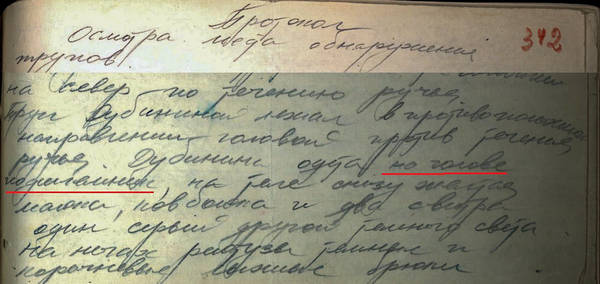 Протокол
Осмотра места обнаружения 342
трупов
на север по течению ручья.
Труп Дубининой лежал в противоположном
направлении головой против течения
ручья. Дубинина одета на голове
, на теле снизу желтая
майка, ковбойка и два свитра
один серый другой темного света
на ногах рейтуза темные и
коричневые лыжные брюки